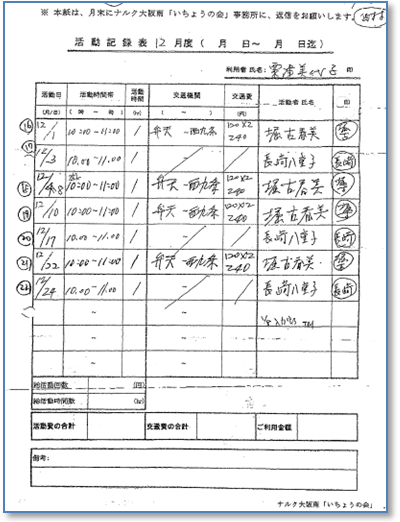 ※ 本紙は、月末にナルク大阪南「いちょうの会」事務所に、返信をお願いします。
活動記録表 12月度（ 月 日～ 月 日迄）
利用者氏名: 印
活動日 活動時間帯 活動時間 交通機関 交通費 活動者氏名 印
(月/日) (時～旬) (hr) (～) (円)
⑯ 12/1 10:00～11:00 1 弁天～西九条 120×2 240 堀古春美
⑰ 12/3 10.00～11.00 1 ～ 長崎八重子 長崎
⑱ 12/8 10:00～11:00 1 弁天～西九条 120×2 240 堀古春美
⑲ 12/10 10:00～11:00 1 弁天～西九条 120×2 240 堀古春美
⑳ 12/17 10.00～11.00 1 ～ 長崎八重子 長崎
㉑ 12/22 10:00～11:00 1 弁天～西九条 120×2 240 堀古春美
㉒ 12/24 10.00～11.00 1 ～ 長崎八重子 長崎
～ ～
～ ～
～ ～
総活動回数 (回)
総活動時間数 (hr)
活動費の合計 交通費の合計 ご利用金額
備考:
ナルク大阪南「いちょうの会」